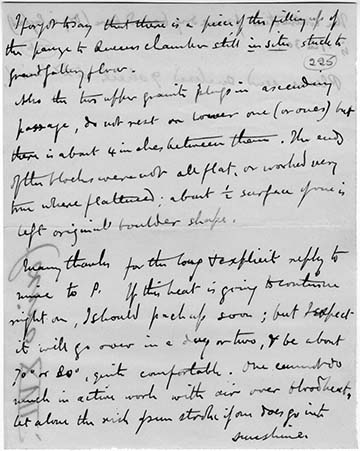 I forgot to say that there is a piece of the filling up of
the passage to Queens chamber still in situ stuck to
grand gallery floor.
(225)
Also the two upper granite plugs in ascending
passage, do not rest on lower one (or ones) but
there is about 4 inches between them. The ends
of the blocks were not all flat, or worked very
true where flattened; about ½ surface of one is
left original boulder shape.
Many thanks for the long & explicit reply to
mine to P. If this heat is going to continue
right on, I should pack up soon; but I expect
it will go over in a day or two, & be about
70° or 80°, quite comfortable. One cannot do
much in active work with air over bloodheat,
let alone the risk from stroke if one does go into
sunshine.